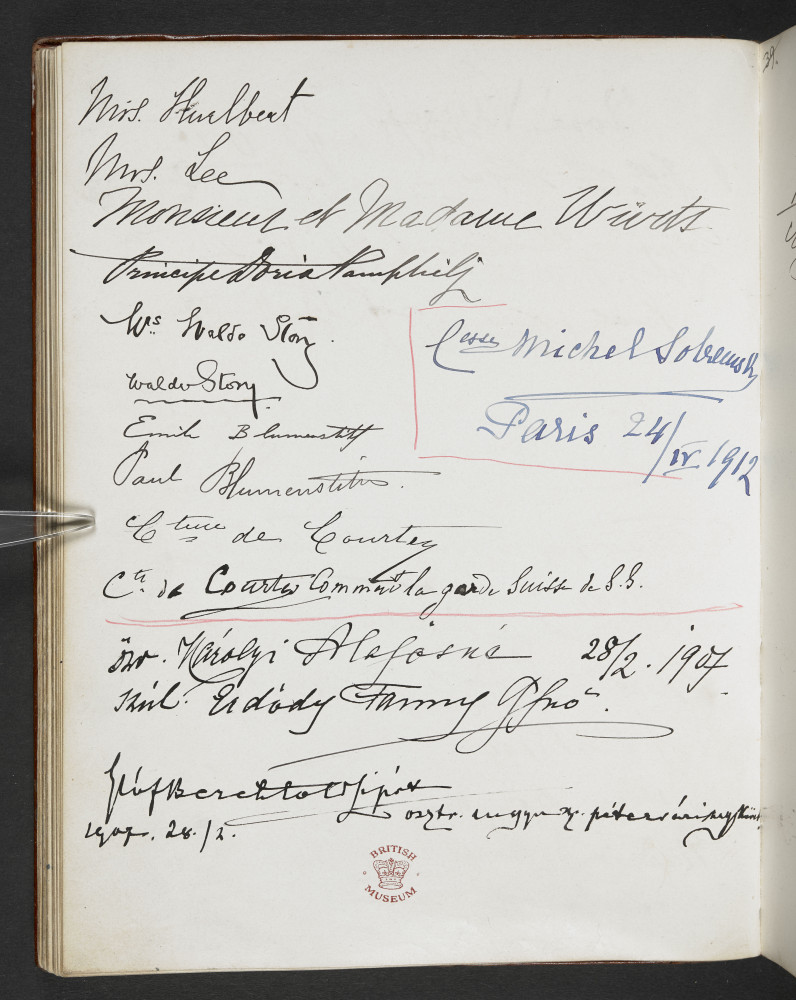 Mrs. Hurlbert
Mrs. Lee
Monsieur et Madame Würts
Principe Doria Pamphilj
Mrs Waldo Story.
Waldo Story
Csse Michel
Paris 24/IV 1912
Emile
Paul
Ctesse de Courten
Cte de Courten Commant la garde Suisse de S.S.
özv. Károlyi Alajosné 28/2. 1907
szül. Erdödy Fanny Gfnő.
Gróf Berchtold Lipót
osztr. magyar sz. pétervári nagykövet
1907. 28./2.
BRITISH MUSEUM
39.